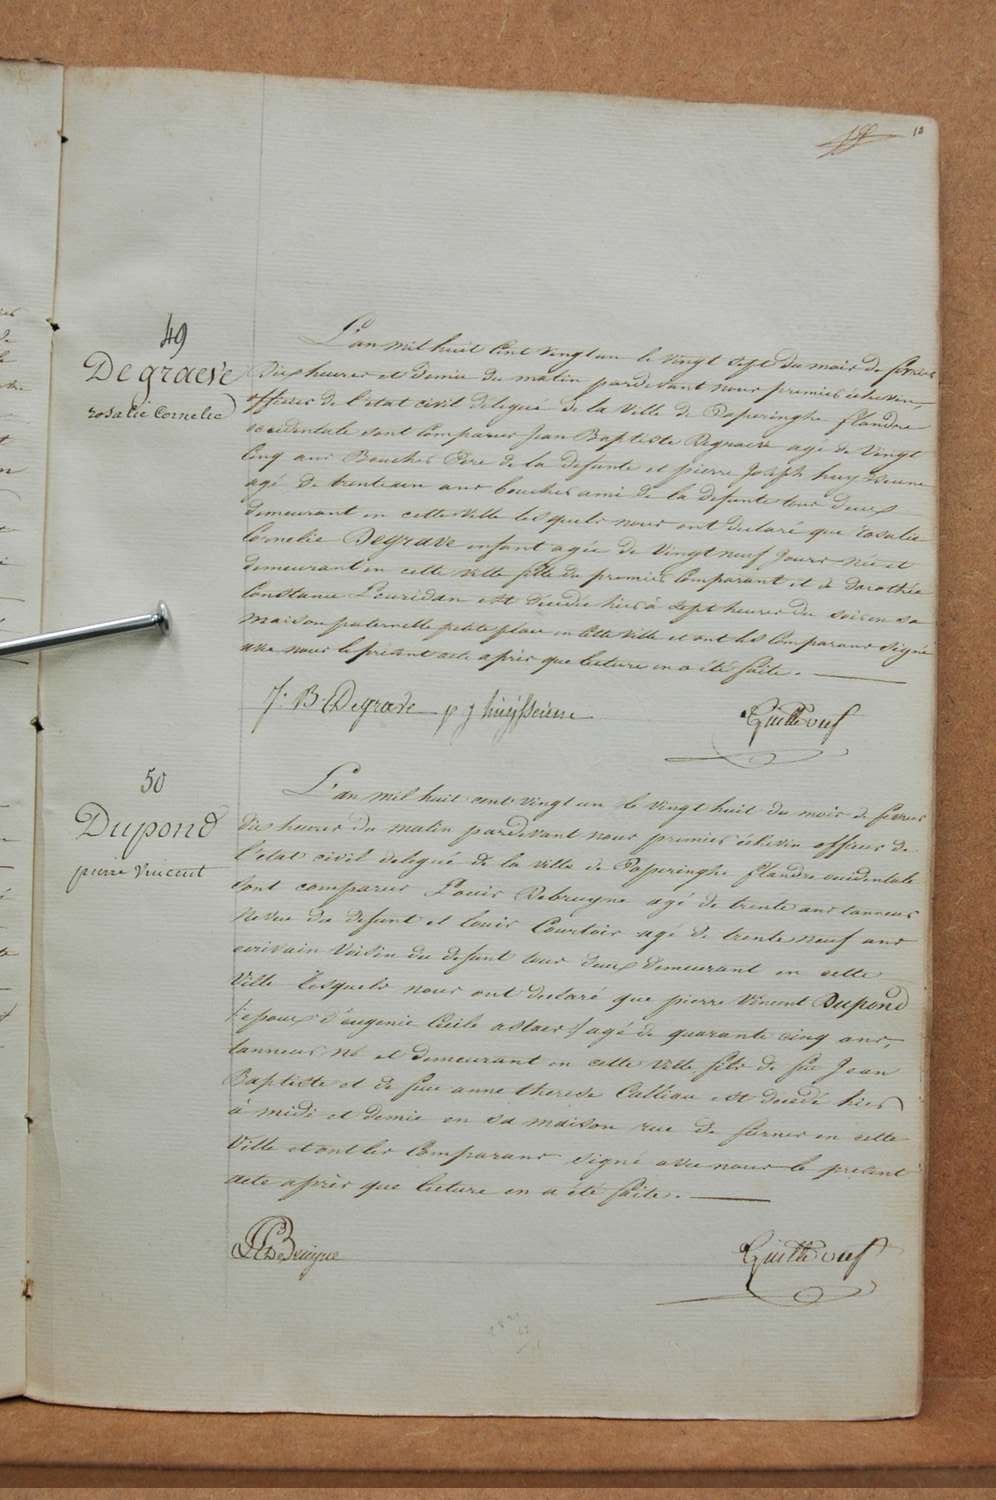 18
49
Degraeve
rosalie Cornelie
L'an mil huit Cent vingt un le vingt sept du mois de fevrier
Dix heures et demie du matin pardevant nous premier échevin,
officier de l'etat civil delegué de la Ville de Poperinghe flandre
occidentale sont Comparus Jean Baptiste Degraeve agé de Vingt
Cinq ans Boucher Pere de la defunte et pierre Joseph huysseune
agé de trenteun ans boucher ami de la defunte tous deux
demeurant en cette Ville lesquels nous ont declaré que rosalie
Cornelie Degrave enfant agée de Vingt neuf Jours née et
demeurant en cette ville fille du premier Comparant et de dorothée
Constance Louridan est decedée hier à sept heures du soir en sa
maison paternelle petite place en Cette Ville et ont les Comparans Signé
avec nous le présent acte après que lecture en a été faite.
J. B. Degrave p j huysseune
50
Dupond
pierre Vincent
L'an mil huit cent vingt un le vingt huit du mois de fevrier
dix heures du matin pardevant nous premier échevin officier de
l'etat civil delegué de la ville de Poperinghe flandre occidentale
sont comparus Louis Debruyne agé de trente ans tanneur
neveu du defunt et louis Courtois agé de trente neuf ans
ecrivain Voisin du defunt tous deux demeurant en cette
Ville Lesquels nous ont declaré que pierre Vincent Dupond
epoux d'eugenie Cecile agé de quarante cinq ans,
tanneur né et demeurant en cette ville fils de feu Jean
Baptiste et de feue anne therese Calleau est decedé hier
à midi et demie en sa maison rue de furnes en cette
Ville et ont les Comparans signé avec nous le présent
acte après que lecture en a été faite.